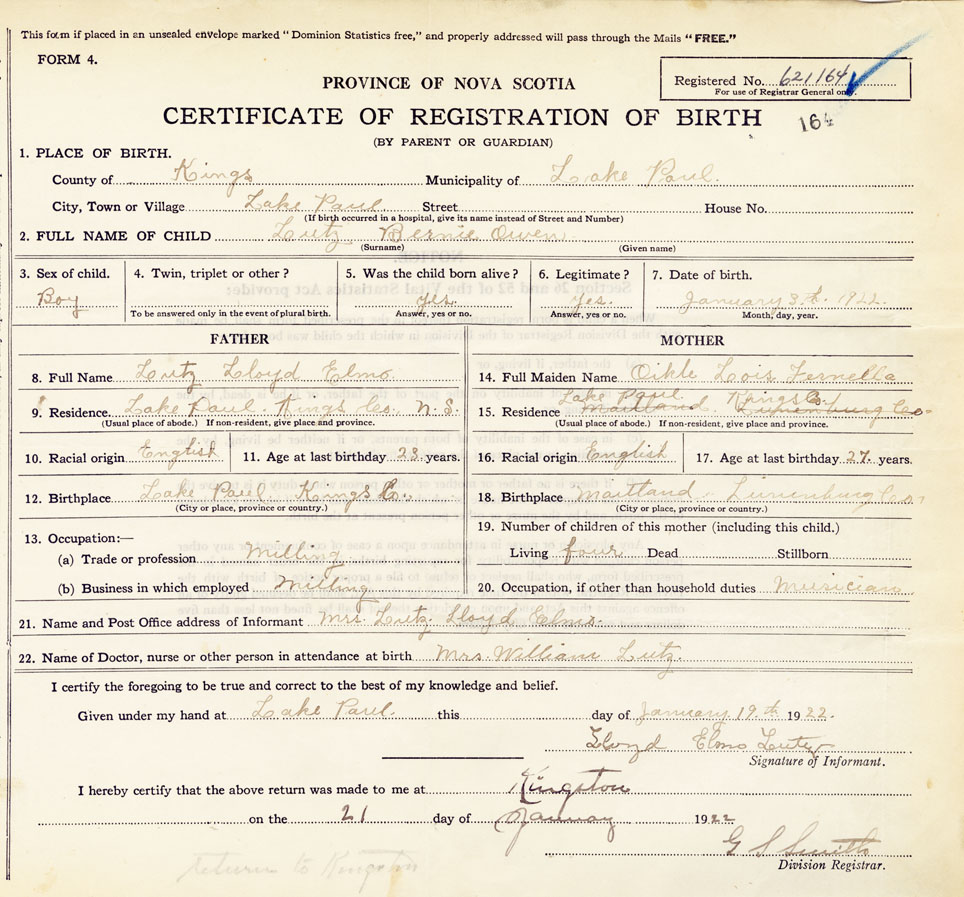 This form if placed in an unsealed envelope marked "Dominion Statistics free," and properly addressed will pass through the Mails "FREE."
FORM 4.
Registered No. 621164
For use of Registrar General only.
164
PROVINCE OF NOVA SCOTIA
CERTIFICATE OF REGISTRATION OF BIRTH
(BY PARENT OR GUARDIAN)
1. PLACE OF BIRTH.
County of Kings Municipality of Lake Paul.
City, Town or Village Lake Paul Street House No.
(If birth occurred in a hospital, give its name instead of Street and Number)
2. FULL NAME OF CHILD Lutz Bernie Owen
(Surname) (Given name)
3. Sex of child. 4. Twin, triplet or other? 5. Was the child born alive? 6. Legitimate? 7. Date of birth.
Boy yes. yes. January 3th. 1922.
To be answered only in the event of plural birth. Answer, yes or no. Answer, yes or no. Month, day, year.
FATHER
8. Full Name Lutz Lloyd Elmo.
9. Residence. Lake Paul. Kings Co. N.S.
(Usual place of abode.) If non-resident, give place and province.
10. Racial origin English 11. Age at last birthday 23 years.
12. Birthplace Lake Paul Kings Co.
(City or place, province or country.)
13. Occupation:—
(a) Trade or profession Milling
(b) Business in which employed Milling
MOTHER
14. Full Maiden Name Oikle Lois Fernella
Lake Paul. Kings Co.
15. Residence Maitland. Lunenburg Co.
(Usual place of abode.) If non-resident, give place and province.
16. Racial origin English 17. Age at last birthday 27. years.
18. Birthplace Maitland. Lunenburg Co.
(City or place, province or country.)
19. Number of children of this mother (including this child.)
Living four Dead Stillborn
20. Occupation, if other than household duties Musician
21. Name and Post Office address of Informant Mrs. Lutz Lloyd Elmo.
22. Name of Doctor, nurse or other person in attendance at birth Mrs. William Lutz.
I certify the foregoing to be true and correct to the best of my knowledge and belief.
Given under my hand at Lake Paul. this day of January 19.th 1922.
Lloyd Elmo Lutz
Signature of Informant.
I hereby certify that the above return was made to me at Kingston
on the 21 day of January 1922
G S Smith
Division Registrar.
return to Kingston